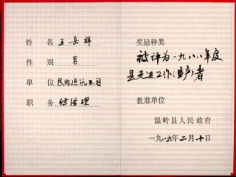 姓 名 王岳祥
性 别 男
单 位
职 务 经理
奖励种类
被评为一九八八年度
县先进工作(生产)者
批准单位
温岭县人民政府
一九八九年二月十日